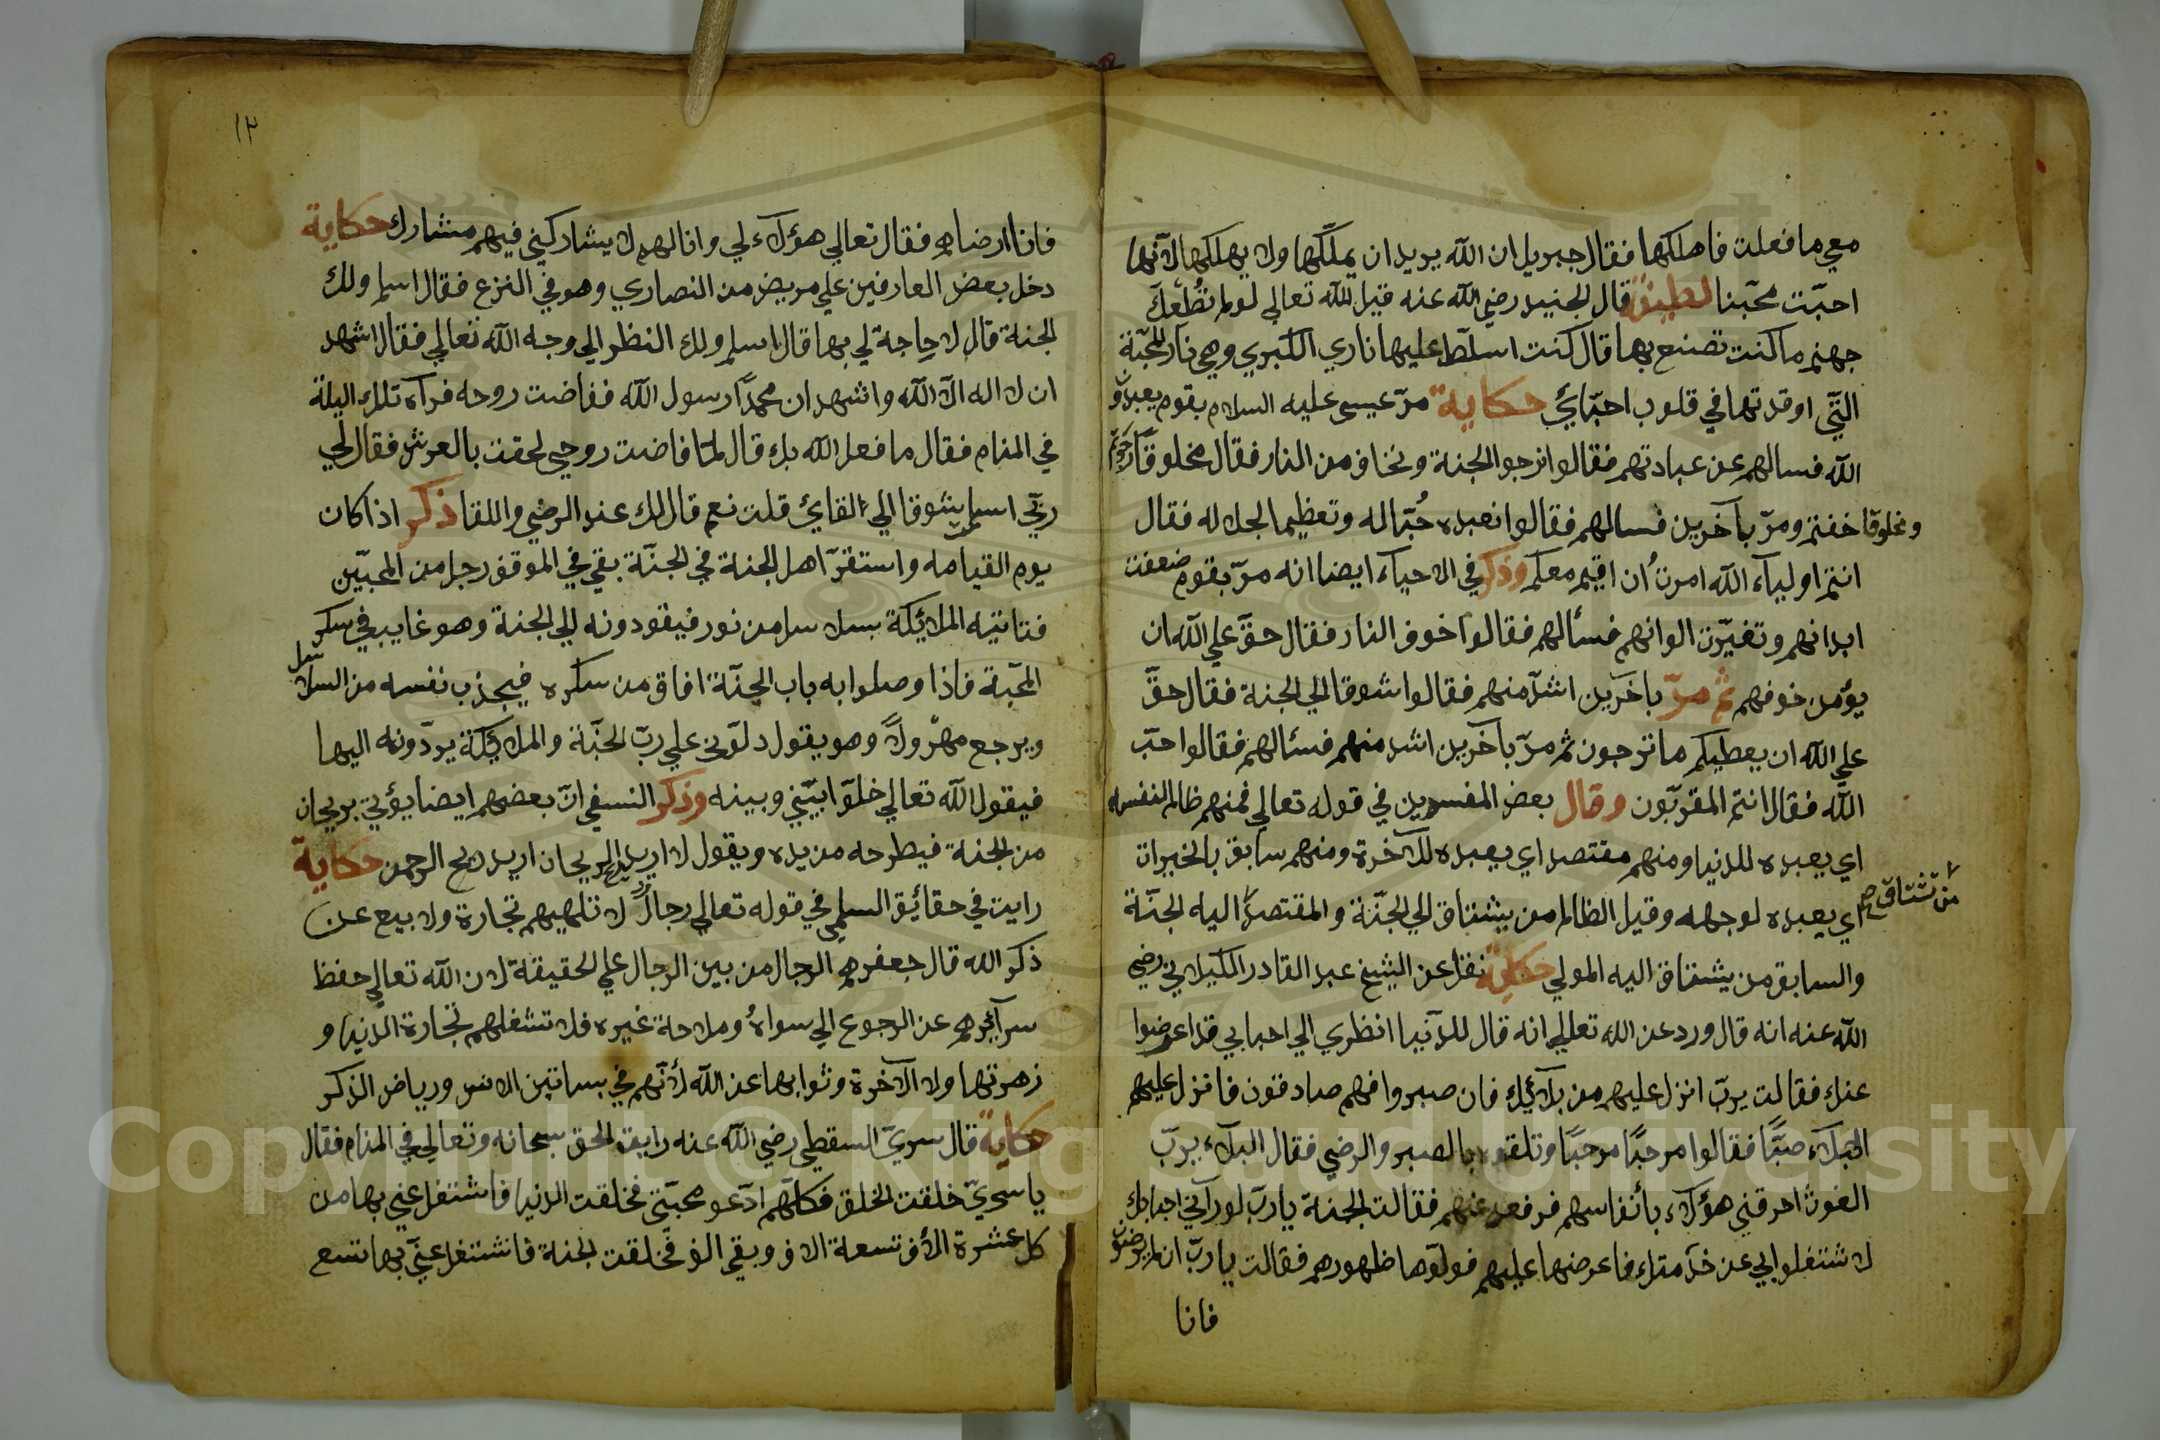 معي ما فعلت فاهلكها فقال جبريل ان الله يريد ان يملكها ولا يهلكها لانها
احبّت محبّنا لطيفة قال الجنيد رضي الله عنه قيل لله تعالي لو لم تُطعك
جهنم ما كنت تصنع بها قال كنت اسلط عليها ناري الكبري وهي نار المحبّة
التّي اوقدتها في قلوب احبّائي حكاية مرّ عيسي عليه السلام بقوم يعبدون
الله فسالهم عن عبادتهم فقالوا نرجوا الجنة ونخاف من النار فقال مخلوقا رجوتم
ومخلوقا خفتم ومرّ بآخرين فسالهم فقالوا نعبده حُبّا له وتعظيما لجلاله فقال
انتم اولياء الله امرتُ ان اقيم معكم وذكر في الاحياء ايضا انه مرّ بقوم ضعفت
ابدانهم وتغيّرت الوانهم فسألهم فقالوا خوف النار فقال حقّ علي الله ان
يؤمن خوفهم ثم مرّ باخرين اشدّ منهم فقالوا شوقا الي الجنة فقال حقّ
علي الله ان يعطيكم ما ترجون ثم مرّ بآخرين اشد منهم فسئالهم فقالوا حبّ
الله فقال انتم المقربّون وقال بعض المفسرين في قوله تعالي فمنهم ظالم لنفسه
اي يعبده للدنيا ومنهم مقتصد اي يعبده للآخرة ومنهم سابق بالخيرات
اي يعبده لوجهه وقيل الظالم من يشتاق الي الجنّة والمقتصد اليه الجنّة
من تشتاق صح
والسابق من يشتاق اليه المولي حكاية نقل عن الشيخ عبد القادر الكيلاني رضي
الله عنه انه قال ورد عن الله تعالي انه قال للدّنيا انظري الي احبابي قد اعرضوا
عنك فقالت يربّ انزل عليهم من بلائك فان صبروا فهم صادقون فانزل عليهم
البلاء صبًّا فقالوا مرحبًا مرحبًا وتلقوه بالصبر والرضي فقال البلاء يربّ
الغوث احرقني هؤلاء بأنفاسهم فرفعه عنهم فقالت الجنة يا ربّ لو رآني احبابك
لاشتغلوا بي عن خدمتك فاعرضها عليهم فولّوها ظهورهم فقالت يا ربّ ان لم يرضوني
فانا
١٢
فانا ارضاهم فقال تعالي هؤلاء لي وانا لهم لا يشاركني فيهم مشارك حكاية
دخل بعض العارفين علي مريض من النصاري وهو في النزع فقال اسلم ولك
الجنة قال لا حاجة لي بها قال اسلم ولك النظر الي وجه الله تعالي فقال اشهد
ان لا اله الاّ الله واشهد ان محمدًا رسول الله ففاضت روحه فرآه تلك اليلة
في المنام فقال ما فعل الله بك قال لمّا فاضت روحي لحقت بالعرش فقال لي
ربّي اسلمت شوقا الي لقائي قلت نعم قال لك عندا الرضي واللقا ذكر اذا كان
يوم القيامه واستقرّ اهل الجنة في الجنّة بقي في الموقف رجل من المحبيّن
فتاتيه الملائكة بسلاسل من نور فيقودونه الي الجنة وهو غايب في سكر
المحبة فاذا وصلوا به باب الجنّة افاق من سكره فيجذب نفسه من السلاسل
ويرجع مهرولاً وهو يقول دلّوني علي ربّ الجنّة والملائكة يردّونه اليها
فيقول الله تعالي خلّوا بيّني وبينه وذكر النسفي انّ بعضهم ايضا يؤتي بريحان
من الجنة فيطرحه من يده ويقول لا اريد ريح الريحان اريد ريح الرحمن حكاية
رايت في حقائق السلمي في قوله تعالي رجالٌ لا تلهيهم تجارة ولا بيع عن
ذكر الله قال جعفر هم الرجال من بين الرجال علي الحقيقة لان الله تعالي حفظ
سرآئرهم عن الرجوع الي سواهُ وملاحة غيره فلا تشغلهم تجارة الدنيا و
زهرتها ولا الآخرة وثوابها عن الله لأنّهم في بساتين الانس ورياض الذكر
حكاية قال سريّ السقطي رضي الله عنه رايت الحق سبحانه وتعالي في المنام فقال
يا سريّ خلقت الخلق فكلّهم ادّعو محبّتي فخلقت الدنيا فاشتغل عني بها من
كل عشرة الأف تسعة الاف وبقي الف فخلقت الجنة فاشتغل عنّي بها تسع
Copyright © King Saud University